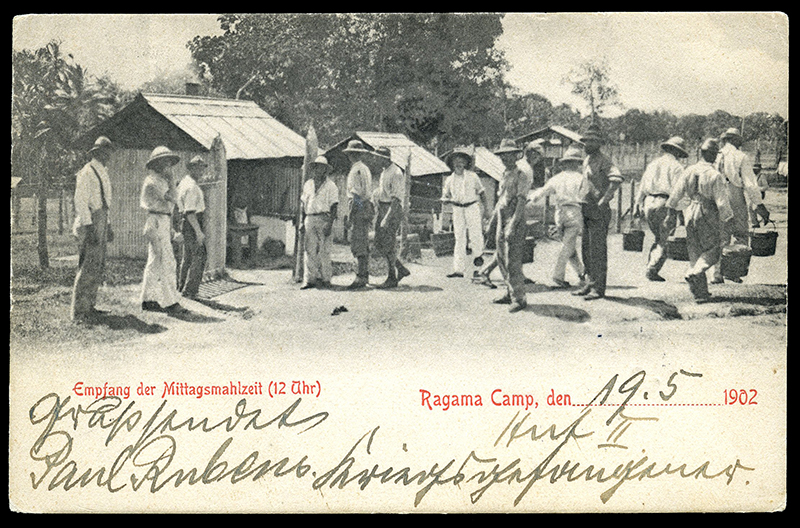 Empfang der Mittagsmahlzeit (12 Uhr)
Ragama Camp, den 19. 5 1902
Grüßsendet Hut II
Paul Rubens. Kriegsgefangener.